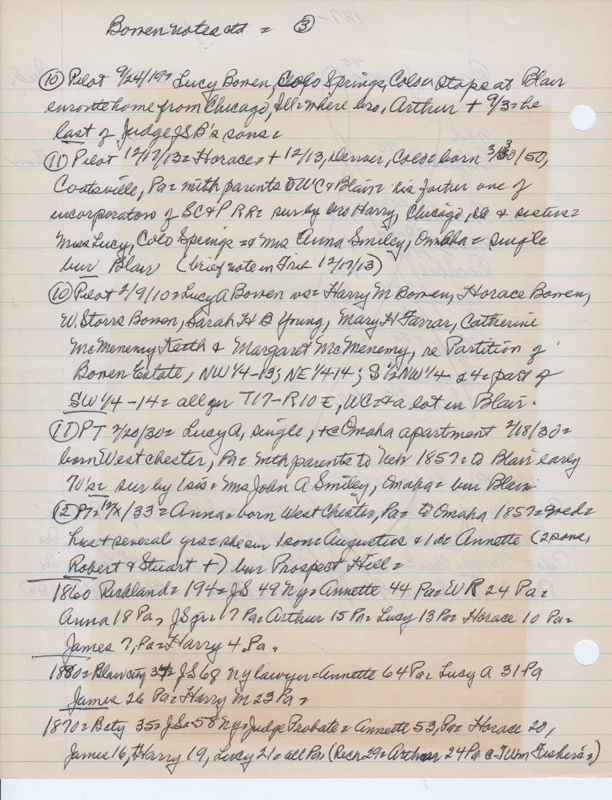 Bowen notes ctd = ③
⑩ Pilot 9/24/19 Lucy Bowen, Colo Springs, Colo = stops at Blair
enroute home from Chicago, Ill = where bro, Arthur + 9/3 = he
last of Judge JSB's sons =
⑪ Pilot 12/17/13 = Horace + 12/13, Denver, Colo = born 3/30/50,
Coatsville, Pa = with parents to WC & Blair = his father one of
incorporators of SC&P RR = sur by bro Harry, Chicago, Ill & sisters =
Miss Lucy, Colo Springs = & Mrs Anna Smiley, Omaha = single
bur Blair (brief note in Trib 12/17/13)
⑩ Pilot 2/9/10 = Lucy A Bowen vs = Harry M Bowen, Horace Bowen,
W Storrs Bowen, Sarah H B Young, Mary H Farrar, Catherine
McMenemy Keith & Margaret McMenemy, re Partition of
Bowen Estate, NW 1/4-13; NE 1/4 14; S 1/2 NW 1/4 24 = part of
SW 1/4 - 14 = all in T17-R10 E, WC = & a lot in Blair.
⑪ PT 2/20/30 = Lucy A, single, + @ Omaha apartment 2/18/30 =
born West chester, Pa = with parents to Neb 1857 = to Blair early
70's = sur by 1 sis = Mrs John A Smiley, Omaha = bur Blair
⑫ PT = /33 = Anna = born West Chester, Pa = to Omaha 1857 =
hus + several yrs = she sur 1 son = Augustus & 1 da Annette (2 sons,
Robert & Stuart +) bur Prospect Hill =
1860 Richland = 194 = JS 49 Ny = Annette 44 Pa = WR 24 Pa =
Anna 18 Pa, JS jr 17 Pa = Arthur 15 Pa = Lucy 13 Pa = Horace 10 Pa =
James 7, Pa = Harry 4, Pa,
1880 = Blair city 37 = JS 68 Ny lawyer = Annette 64 Pa = Lucy A 31 Pa
James 26 Pa = Harry M 23 Pa =
1870 = Bcty 35 = JS = 58 Ny = Judge Probate = Annette 53, Pa = Horace 20,
James 16, Harry 19, Lucy 21 = all Pa (Rich 29 = Arthur 24 Pa @ J Wm Fisher's)